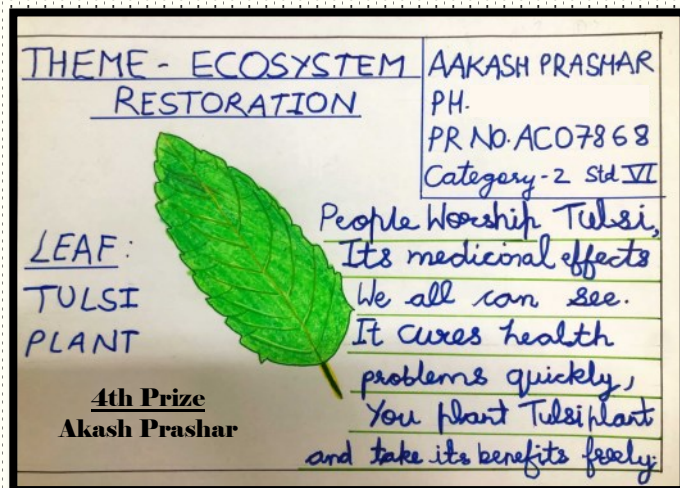 THEME - ECOSYSTEM
RESTORATION
AAKASH PRASHAR
PH.
PR NO. AC07868
Category-2 Std VI
LEAF:
TULSI
PLANT
People Worship Tulsi,
Its medicinal effects
We all can see.
It cures health
problems quickly,
You plant Tulsi plant
and take its benefits freely.
4th Prize
Akash Prashar